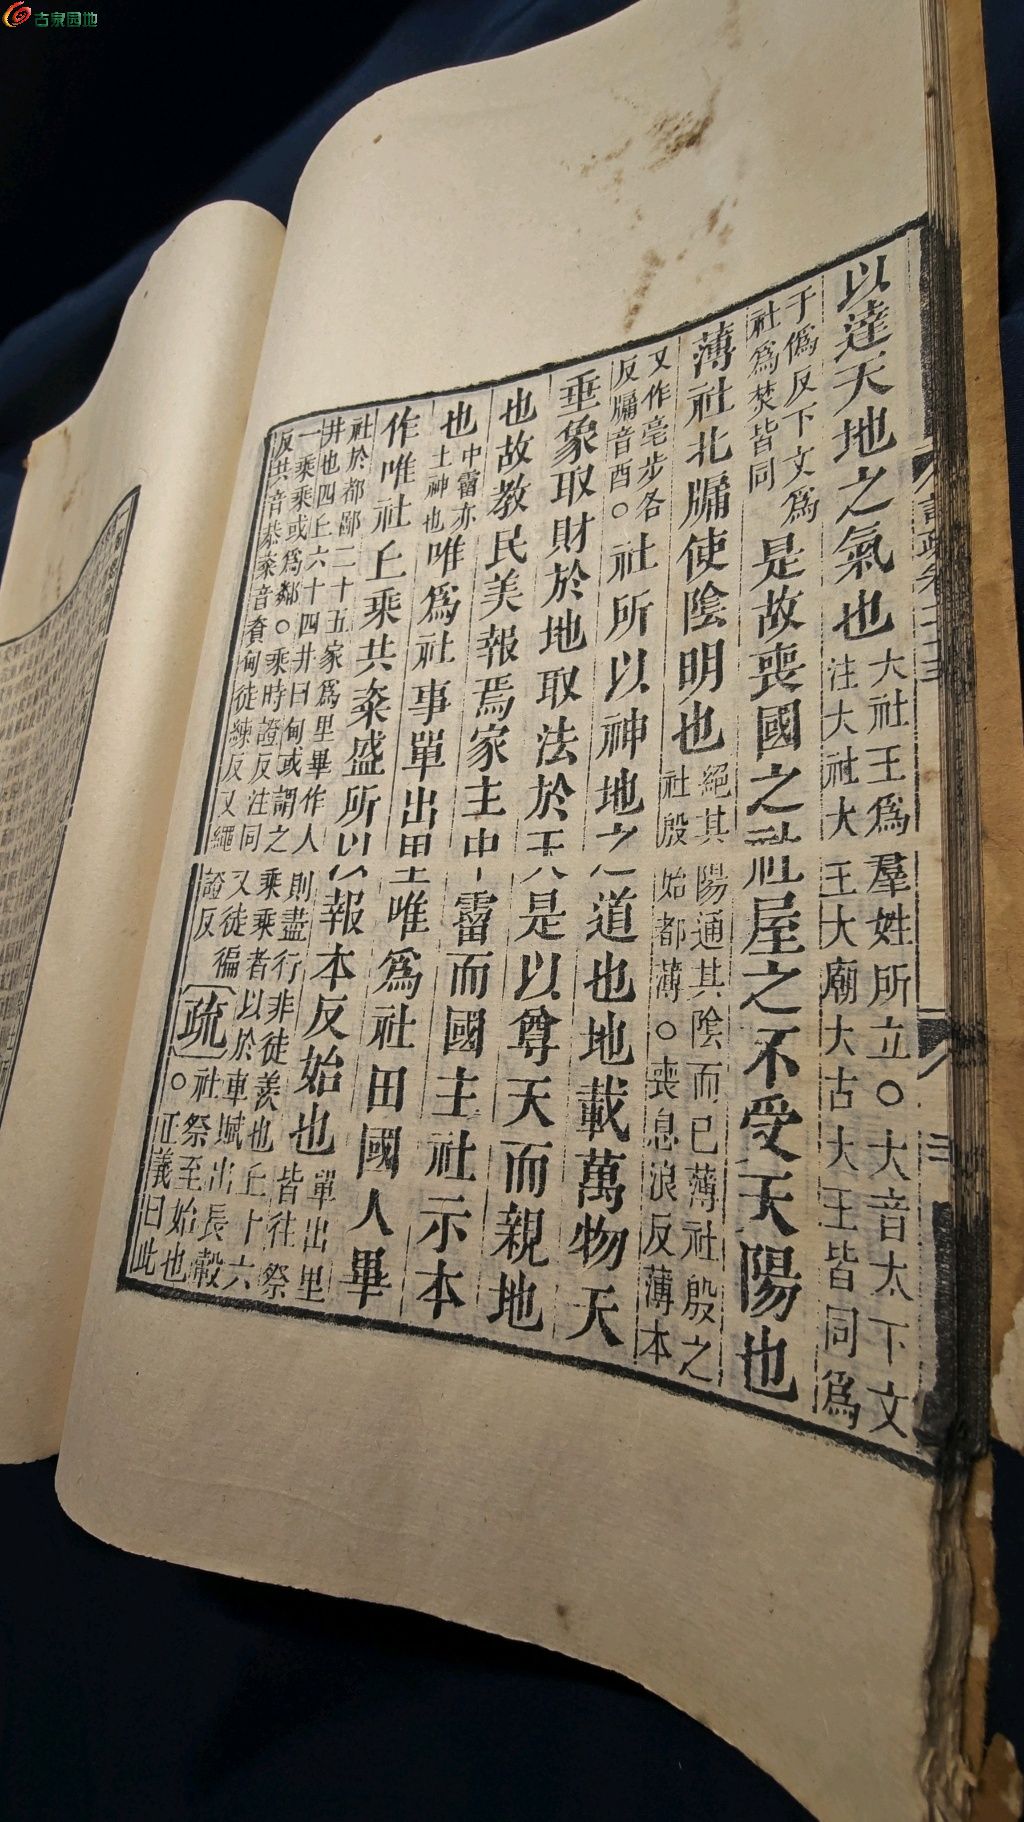 古泉园地
以達天地之氣也
大社王爲羣姓所立○大音太下文
注大社大王大廟大古大王皆同爲
于僞反下文爲
社爲焚皆同
是故喪國之社屋之不受天陽也
薄社北牖使陰明也
絕其陽通其陰而已薄社殷之
社殷始都薄○喪息浪反薄本
又作亳步各
反牖音酉○
社所以神地之道也地載萬物天
垂象取財於地取法於天是以尊天而親地
也故教民美報焉家主中霤而國主社示本
也
中霤亦
土神也
唯爲社事單出里唯爲社田國人畢
作唯社丘乘共粢盛所以報本反始也
單出里
皆往祭
社於都鄙二十五家爲里畢作人則盡行非徒羨也丘十六
井也四丘六十四井曰甸或謂之乘乘者以於車賦出長轂
一乘乘或爲鄰○乘時證反注同又徒徧
反共音恭粢音甸徒練反又繩證反
疏
○社祭至始也
正義曰此